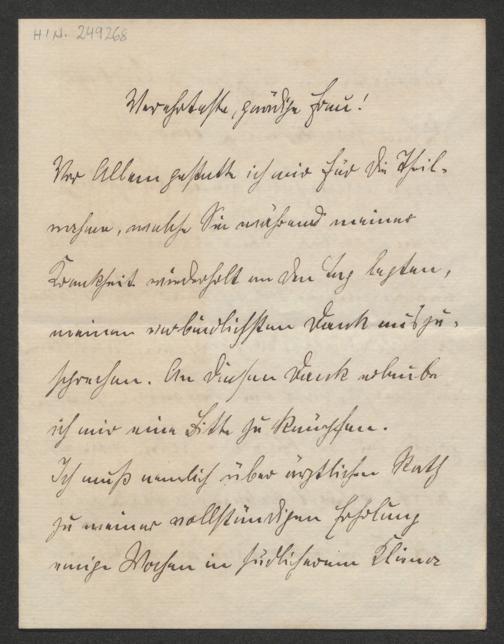 H.I.N. 249268
Verehrteste, gnädige Frau!
Vor Allem gestatte ich mir für die Theil-
nahme, welche Sie während meiner
Krankheit wiederholt an den Tag legten,
meinen verbindlichsten Dank auszu-
sprechen. An diesen Dank erlaube
ich mir eine Bitte zu knüpfen.
Ich muß nemlich über ärztlichen Rath
zu meiner vollständigen Erholung
einige Wochen in südlicherem Klima